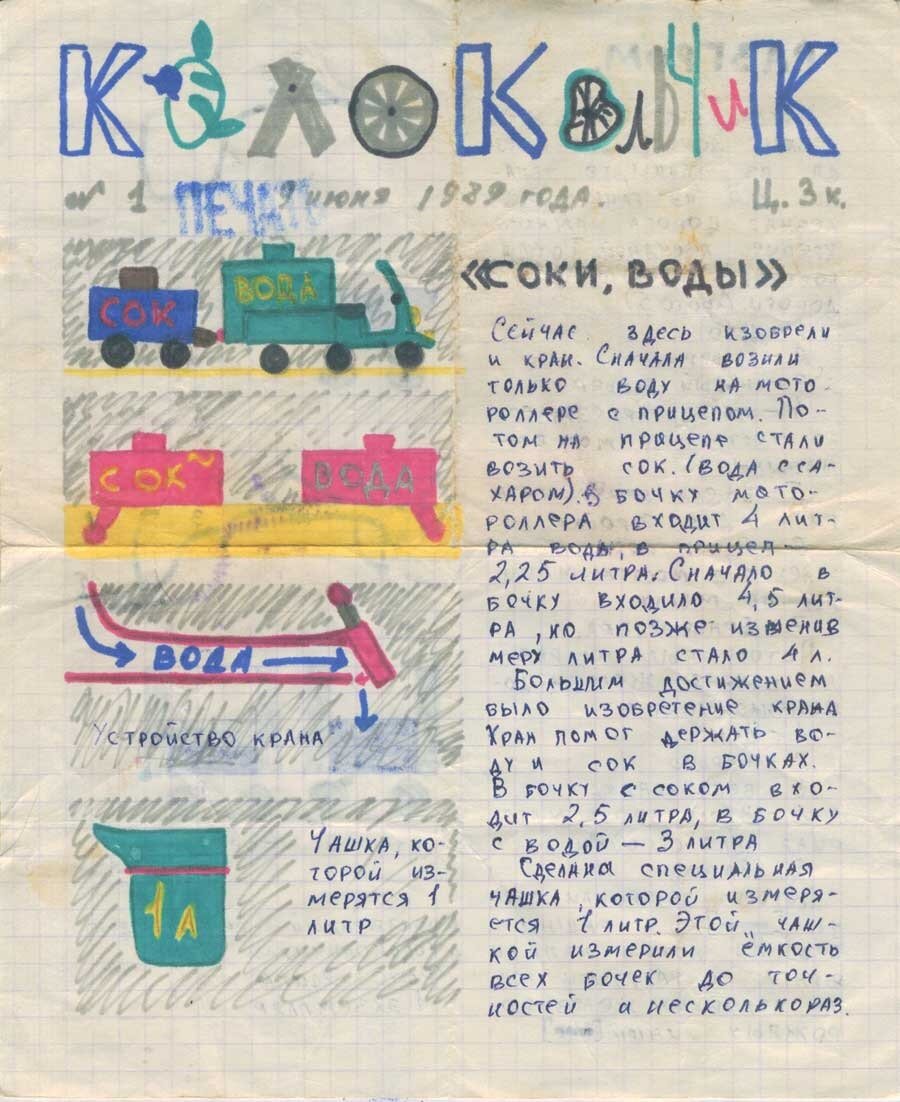 КОЛОКОЛЬЧИК
№ 1 ПЕЧАТЬ 9 июня 1989 года. Ц. 3 к.
СОК
ВОДА
СОК
ВОДА
ВОДА
Устройство крана
1 Л
Чашка, ко-
торой из-
мерятся 1
литр
«СОКИ, ВОДЫ»
Сейчас здесь изобрели
и кран. Сначала возили
только воду на мото-
роллере с прицепом. По-
том на прицепе стали
возить сок. (вода с са-
харом). в бочку мото-
роллера входит 4 лит-
ра воды, в прицеп —
2,25 литра. Сначало в
бочку входило 4,5 лит-
ра, но позже изменив
меру литра стало 4 л.
Большим достижением
было изобретение крана
Кран помог держать во-
ду и сок в бочках.
В бочку с соком вхо-
дит 2,5 литра, в бочку
с водой — 3 литра
Сделана специальная
чашка, которой измеря-
ется 1 литр. Этой чаш-
кой измерили ёмкость
всех бочек до точ-
ностей и несколько раз.